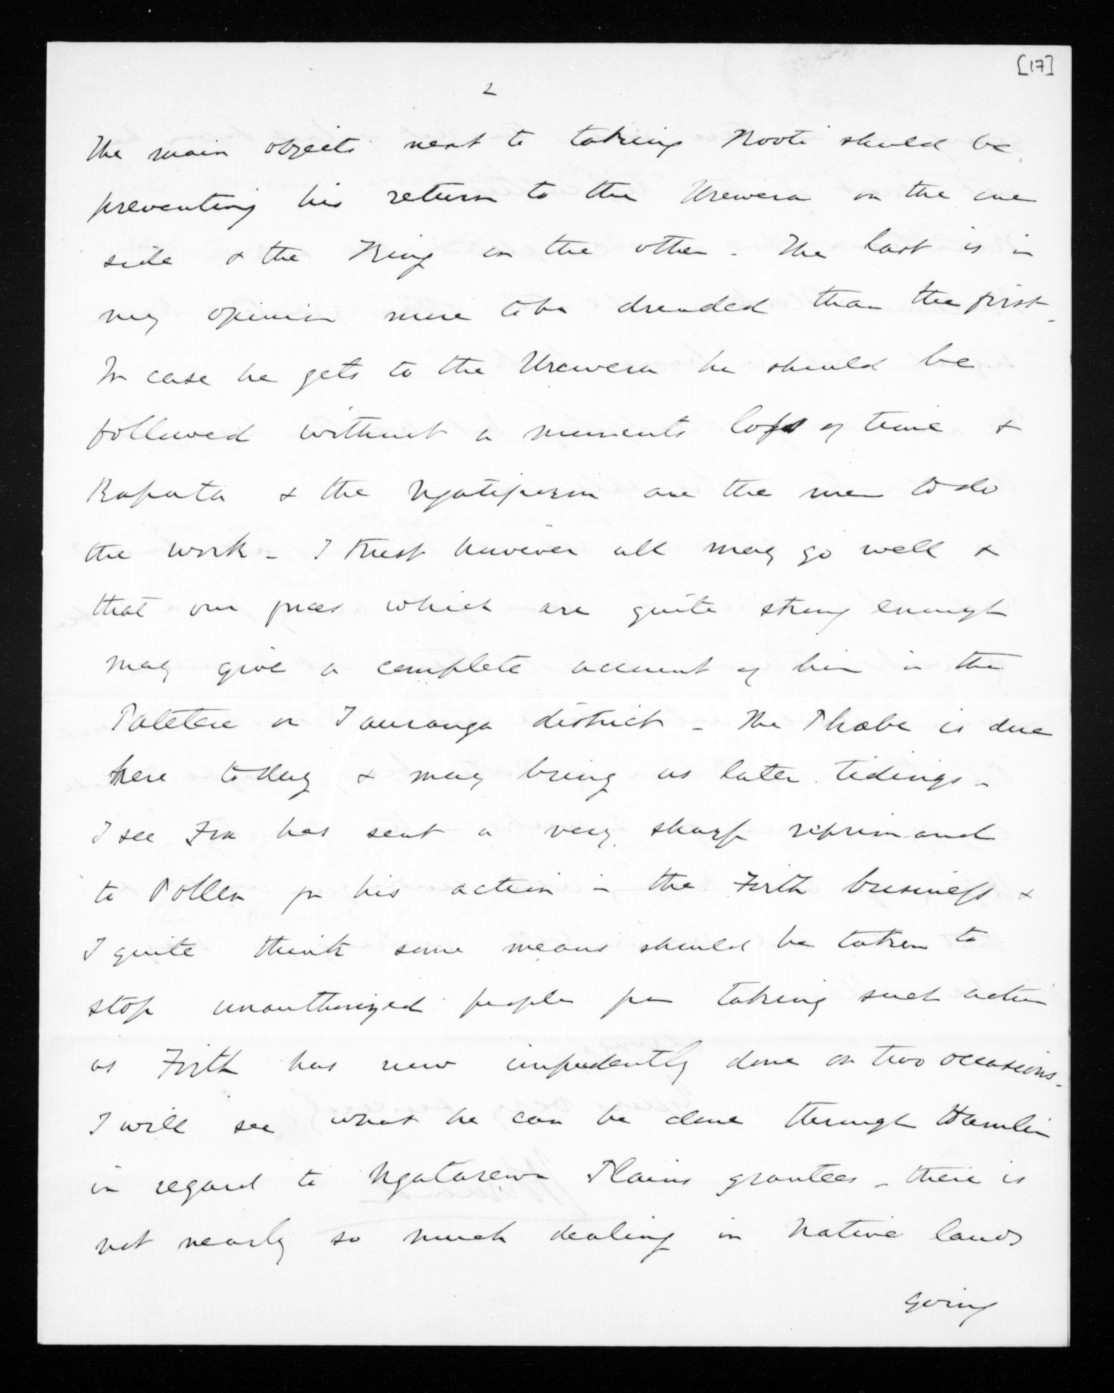 [17]
2
The main objects next to taking Kooti should be
preventing his return to the Urewera on the one
side & the King on the other - The last is in
my opinion more to be dreaded than the first -
In case he gets to the Urewera he should be
followed without a moments loss of time &
Ropata & the Ngatiporou are the men to do
the work - I trust however all may go well &
that our forces which are quite strong enough
may give a complete account of him in the
Patetere or Tauranga district - The Phoebe is due
here today & may bring us later tidings -
I see Fox has sent a very sharp reprimand
to Pollen for his action in the Firth business &
I quite think some means should be taken to
stop unauthorized people from taking such action
as Firth has now impudently done on two occasions -
I will see what he can be done through Hamlin
in regard to Ngatarawa Plains grantees - there is
not nearly so much dealing in Native lands
going